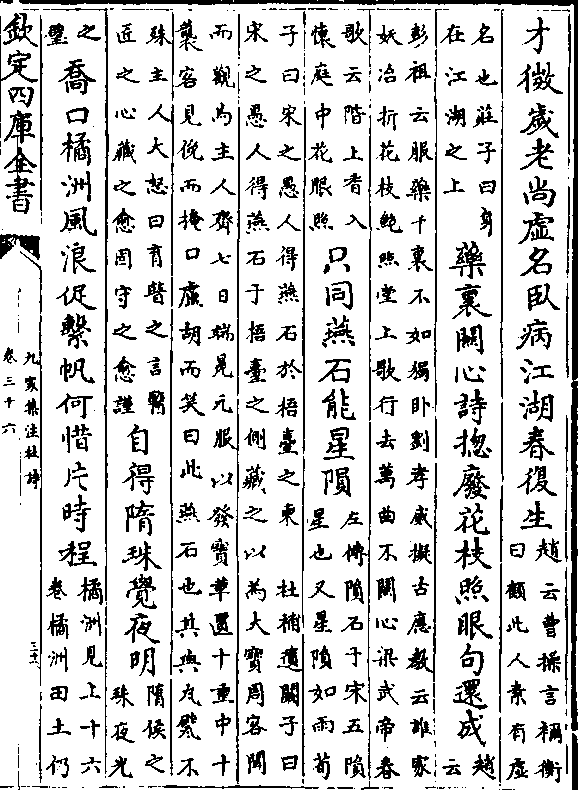 才微歲老尚虛名臥病江湖春復生
趙云曹操言禰衡
曰顧此人素有虛
名也莊子曰身
在江湖之上
藥裹關心詩揔廢花枝照眼句還成
趙
云
彭祖云服藥千裹不如獨卧劉孝威擬古應教云誰家
妖冶折花枝鮑照堂上歌行去萬曲不關心梁武帝春
歌云階上香入
懷庭中花眼照
只同燕石能星隕
左傳隕石于宋五隕
星也又星隕如雨荀
子曰宋之愚人得燕石於梧臺之東 杜補遺闕子曰
宋之愚人得燕石于梧臺之側藏之以為大寶周客聞
而觀焉主人齋七日端冕元服以發寶革匱十重中十
襲客見俛而掩口盧胡而笑曰此燕石也其與瓦甓不
殊主人大怒曰商賈之言醫
匠之心藏之愈固守之愈謹
自得隋珠覺夜明
隋侯之
珠夜光
之
璧
喬口橘洲風浪促繫帆何惜片時程
橘洲見上十六
卷橘洲田土仍
欽定四庫全書
九家集注杜詩
卷三十六